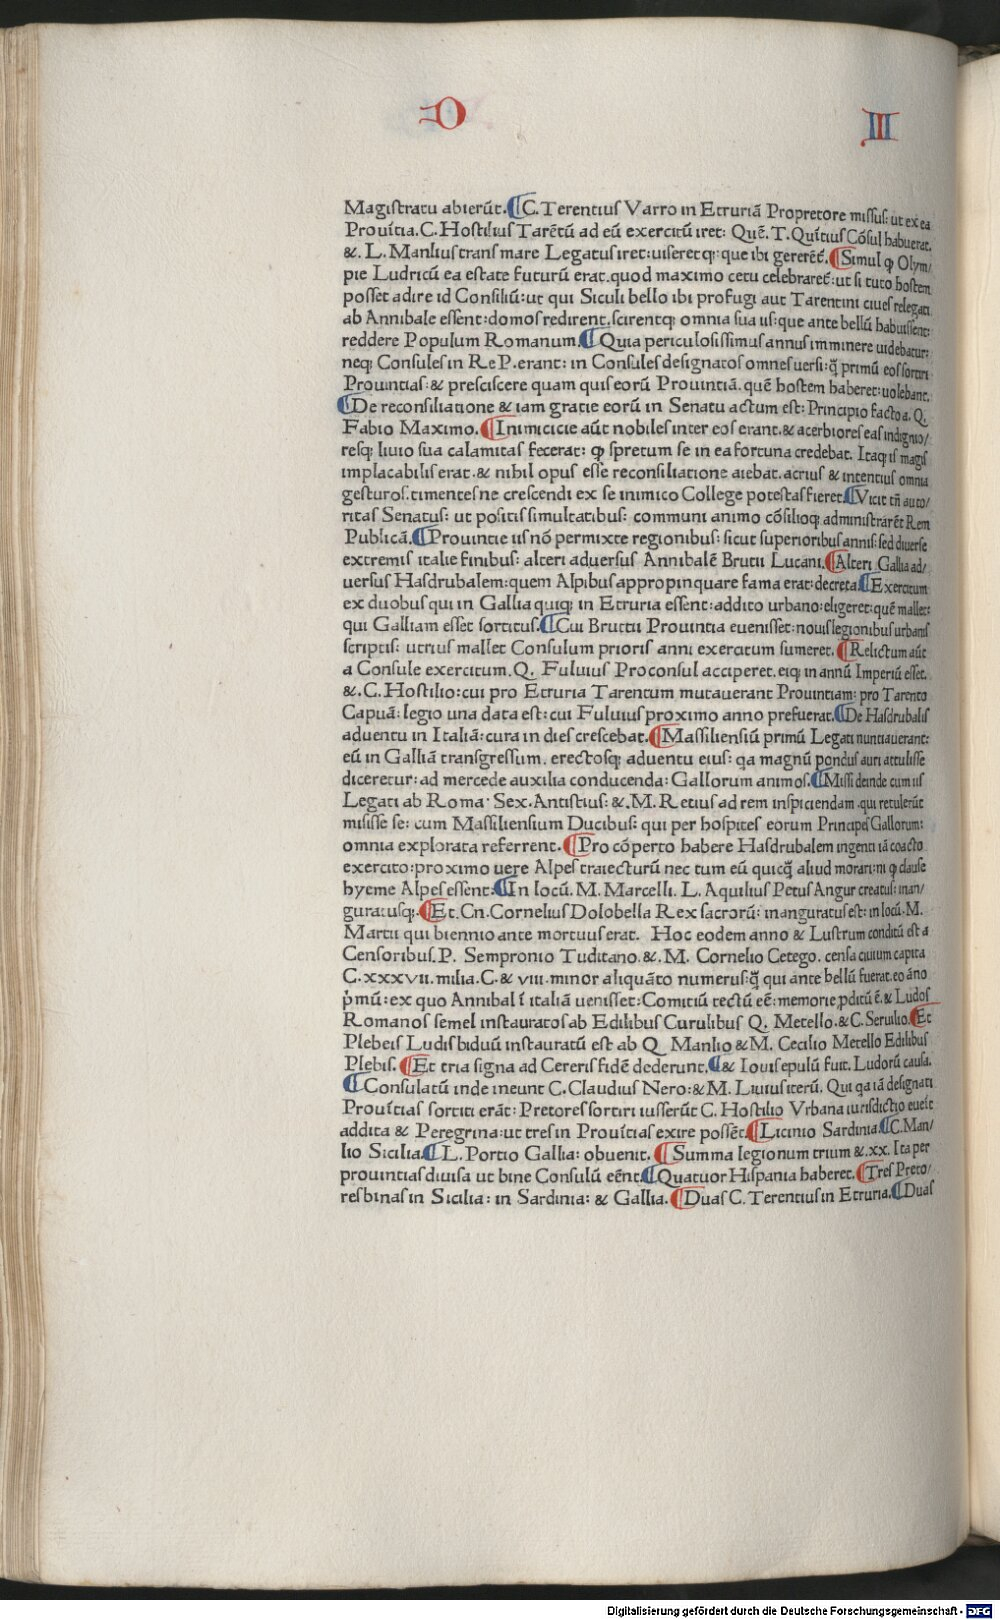 D III
Magistratu abierūt. C. Terentius Varro in Etruriā Propretore missus: ut ex ea
Prouītia. C. Hostilius Tarētū ad eū exercitū iret: Quē. T. Quītius Cōsul habuerat.
&. L. Manlius trans mare Legatus iret: uiseretq;: que ibi gererēt̄. Simul ꝙ Olym/
pie Ludricū ea estate futurū erat. quod maximo cetu celebraret̄: ut si tuto hostem
posset adire id Consiliū: ut qui Siculi bello ibi profugi aut Tarentini ciues relegati
ab Annibale essent: domos redirent. scirentq; omnia sua iis: que ante bellū habuissent:
reddere Populum Romanum. Quia periculosissimus annus imminere uidebatur:
neq; Consules in Re P. erant: in Consules designatos omnes uersi: q̄ primū eos sortiri
Prouintias: & presciscere quam quis eorū Prouintiā. quē hostem haberet: uolebant.
De reconsiliatione & iam gratie eorū in Senatu actum est: Principio facto a. Q.
Fabio Maximo. Inimicicie aūt nobiles inter eos erant. & acerbiores eas indignio/
resq; liuio sua calamitas fecerat: ꝙ spretum se in ea fortuna credebat. Itaq; is magis
implacabilis erat. & nihil opus esse reconsiliatione aiebat. acrius & intentius omnia
gesturos. timentes ne crescendi ex se inimico College potestas fieret. Vicit tn̄ auto/
ritas Senatus: ut positis simultatibus: communi animo cōsilioq; administrarēt Rem
Publicā. Prouintie iis nō permixte regionibus: sicut superioribus annis: sed diuerse
extremis italie finibus: alteri aduersus Annibalē Brutii Lucani. Alteri Gallia ad/
uersus Hasdrubalem: quem Alpibus appropinquare fama erat: decreta. Exercitum
ex duobus qui in Gallia quiq; in Etruria essent: addito urbano: eligeret: quē mallet:
qui Galliam esset sortitus. Cui Bruttii Prouintia euenisset: nouis legionibus urbanis
scriptis: utrius mallet Consulum prioris anni exercitum sumeret. Relictum aūt
a Consule exercitum. Q. Fuluius Proconsul acciperet. eiq; in annū Imperiū esset.
&. C. Hostilio: cui pro Etruria Tarentum mutauerant Prouintiam: pro Tarento
Capuā: legio una data est: cui Fuluius proximo anno prefuerat. De Hasdrubalis
aduentu in Italiā: cura in dies crescebat. Massiliensiū primū Legati nuntiauerant:
eū in Galliā transgressum. erectosq; aduentu eius: qa magnū pondus auri attulisse
diceretur: ad mercede auxilia conducenda: Gallorum animos. Missi deinde cum iis
Legati ab Roma. Sex. Antistius: &. M. Retius ad rem inspiciendam. qui retulerūt
misisse se: cum Massiliensium Ducibus: qui per hospites eorum Principes Gallorum:
omnia explorata referrent. Pro cōperto habere Hasdrubalem ingenti iā coacto
exercito: proximo uere Alpes traiecturū nec tum eū quicq̄ aliud morari: ni ꝙ clause
hyeme Alpes essent: In locū. M. Marcelli. L. Aquilius Petus Angur creatus: inan/
guratusq;. Et. Cn. Cornelius Dolobella Rex sacrorū: inanguratus est: in locū. M.
Martii qui biennio ante mortuus erat. Hoc eodem anno & Lustrum conditū est a
Censoribus. P. Sempronio Tuditano. &. M. Cornelio Cetego. censa ciuium capita
C. xxxvii. milia. C. & viii. minor aliquāto numerus: q̄ qui ante bellū fuerat. eo āno
p̄mū: ex quo Annibal ī italiā uenisset: Comitiū tectū eē: memorie ꝓditū ē. & Ludos
Romanos semel instauratos ab Edilibus Curulibus Q. Metello. & C. Seruilio. Et
Plebeis Ludis biduū instauratū est ab Q Manlio & M. Cecilio Metello Edilibus
Plebis. Et tria signa ad Cereris fidē dederunt. & Iouis epulū fuit. Ludorū causa.
Consulatū inde ineunt C. Claudius Nero: & M. Liuius iterū. Qui qa iā designati
Prouītias sortiti erāt: Pretores sortiri iusserūt C. Hostilio Vrbana iurisdictio eueīt
addita & Peregrina: ut tres in Prouītias exire possēt. Licinio Sardinia. C. Man/
lio Sicilia. L. Portio Gallia: obuenit. Summa legionum trium &. xx. Ita per
prouintias diuisa ut bine Consulū eēnt. Quatuor Hispania haberet. Tres Preto/
res binas in Sicilia: in Sardinia: & Gallia. Duas C. Terentius in Etruria. Duas
Digitalisierung gefördert durch die Deutsche Forschungsgemeinschaft - DFG